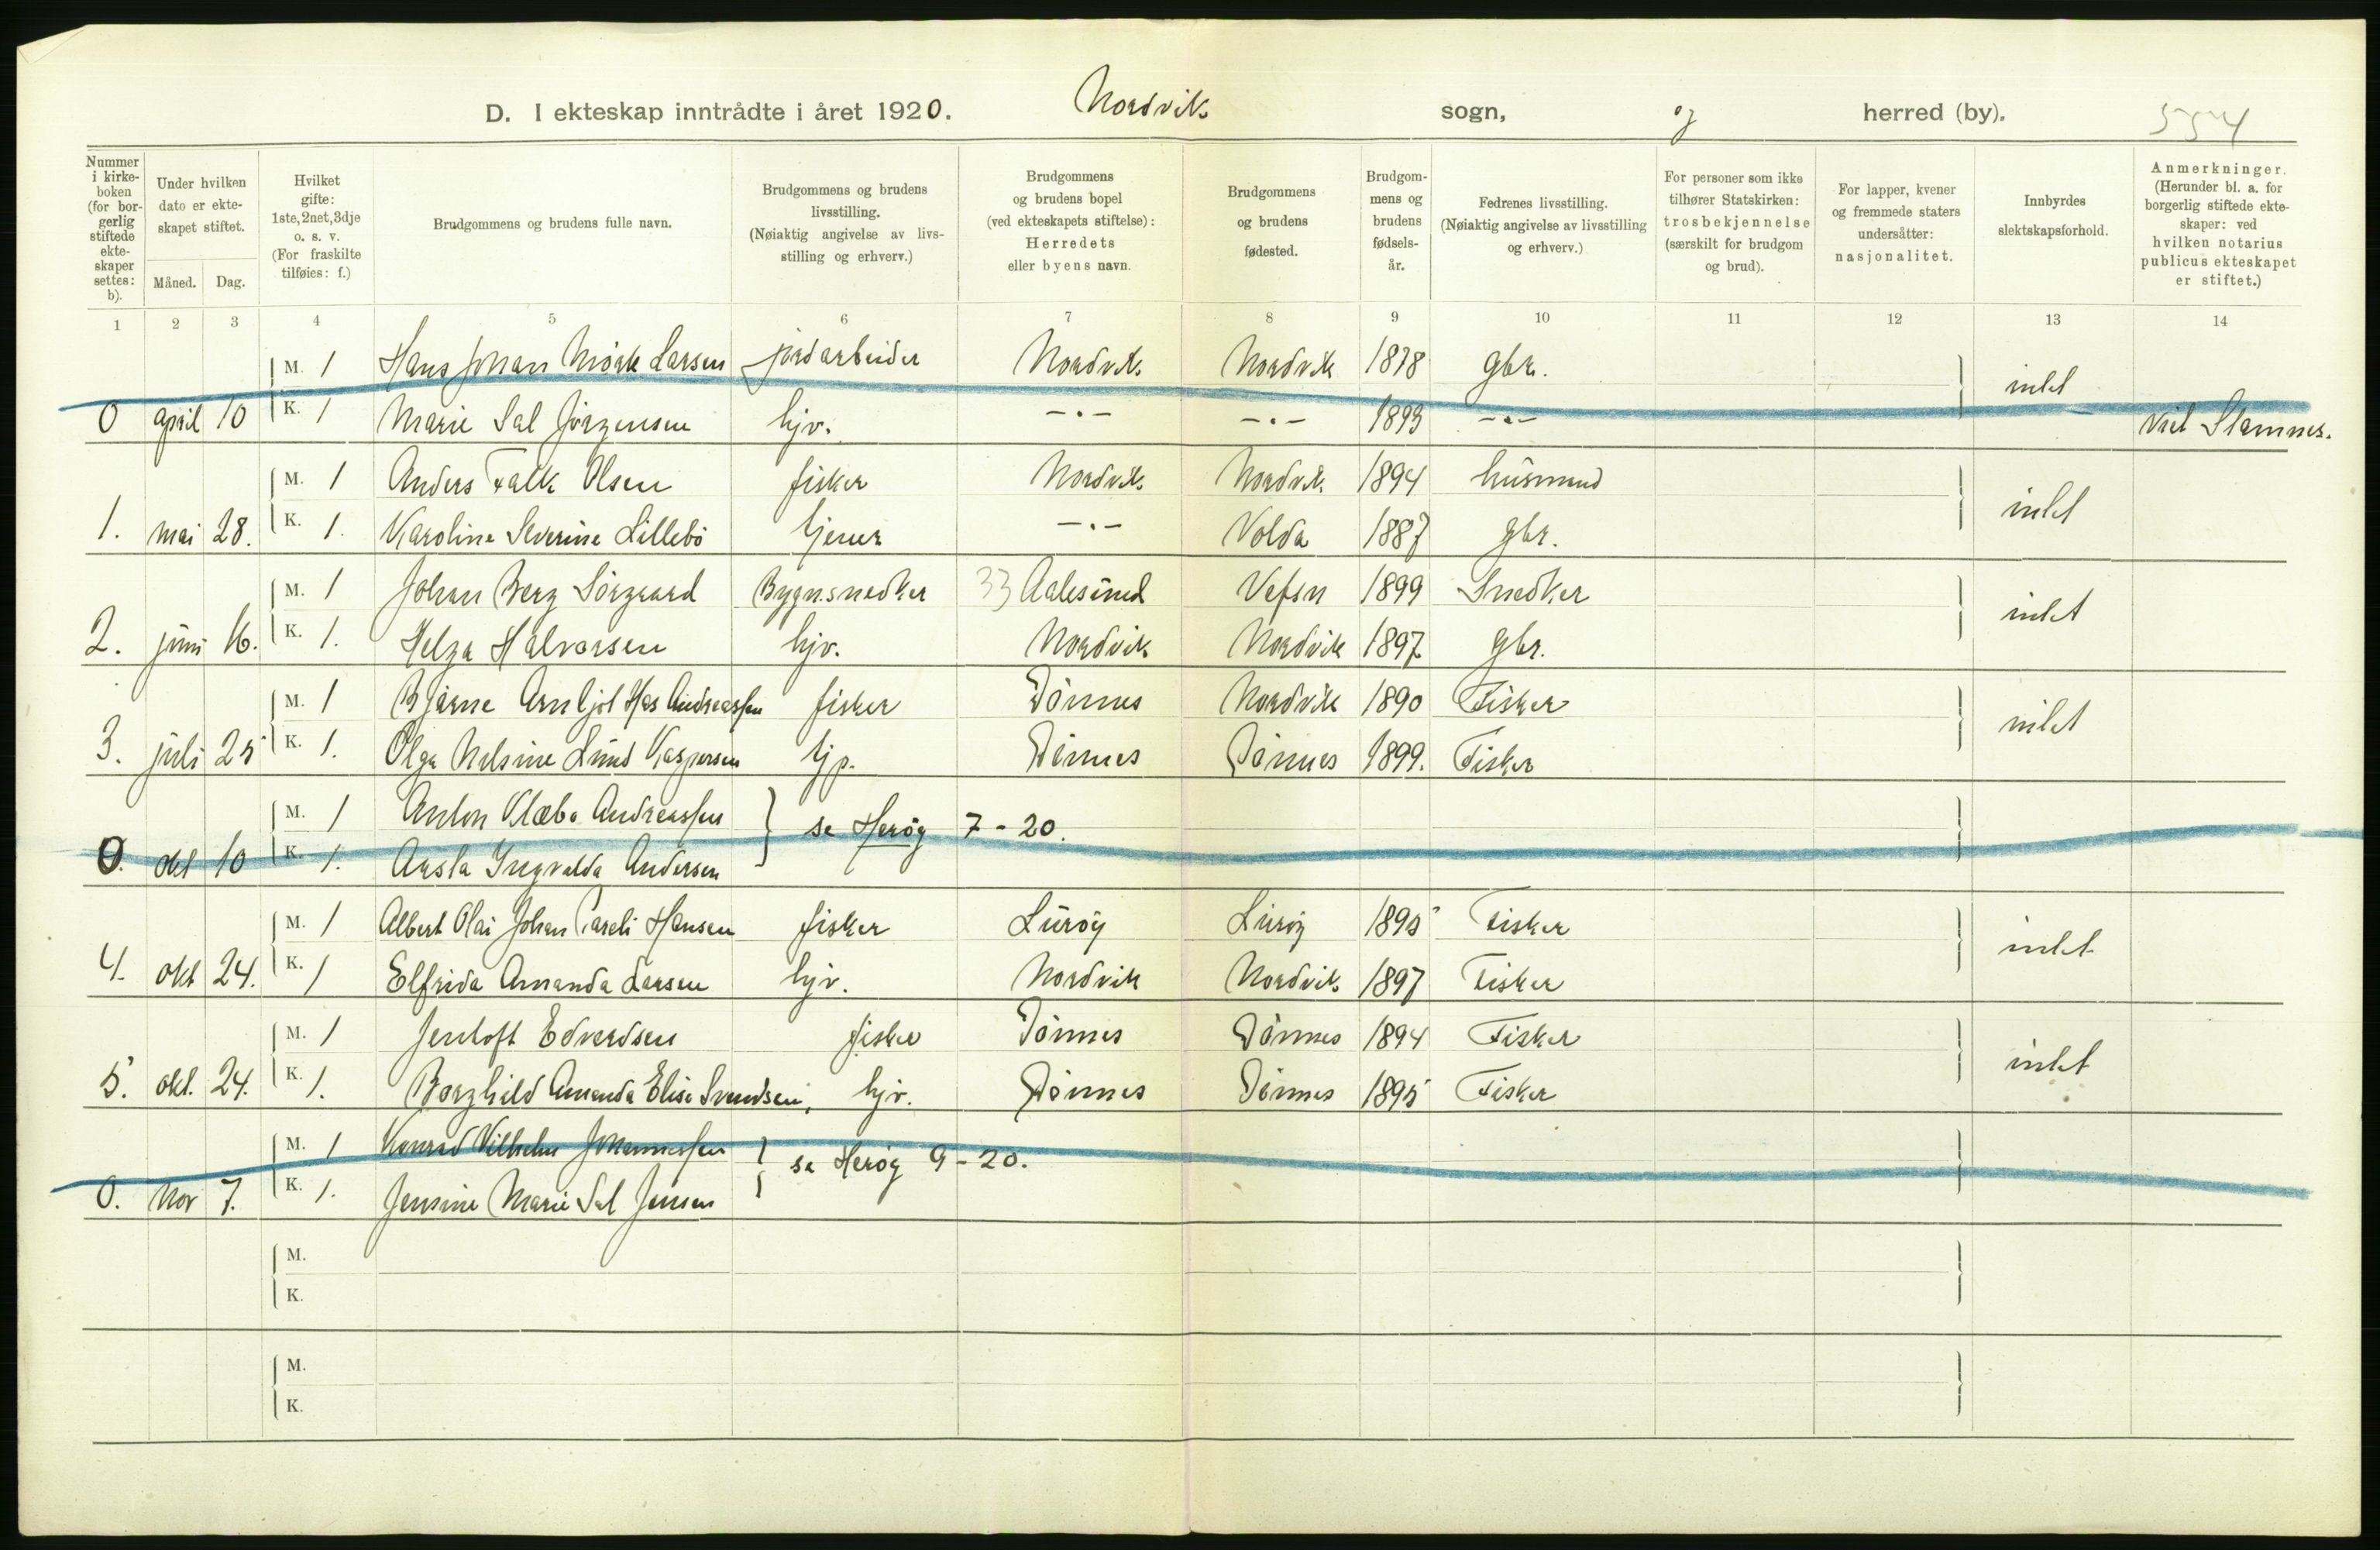 D. I ekteskap inntrådte i året 1920. Nordvik sogn, og herred (by). 554
Nummer i kirkeboken (for borgerlig stiftede ekteskaper settes: b).
Under hvilken dato er ekteskapet stiftet. Måned. Dag.
Hvilket gifte: 1ste, 2net, 3dje o. s. v. (For fraskilte tilføies: f.)
Brudgommens og brudens fulle navn.
Brudgommens og brudens livsstilling. (Nøiaktig angivelse av livsstilling og erhverv.)
Brudgommens og brudens bopel (ved ekteskapets stiftelse): Herredets eller byens navn.
Brudgommens og brudens fødested.
Brudgommens og brudens fødselsår.
Fedrenes livsstilling. (Nøiaktig angivelse av livsstilling og erhverv.)
For personer som ikke tilhører Statskirken: trosbekjennelse (særskilt for brudgom og brud).
For lapper, kvener og fremmede staters undersåtter: nasjonalitet.
Innbyrdes slektskapsforhold.
Anmerkninger. (Herunder bl. a. for borgerlig stiftede ekteskaper: ved hvilken notarius publicus ekteskapet er stiftet.)
1 2 3 4 5 6 7 8 9 10 11 12 13 14
M. 1 Hans Johan Mørk Larsen jordarbeider Nordvik Nordvik 1878 gbr. intet
0 april 10 K. 1 Marie Sal Jörgensen hjv. -"- -"- 1893 -"- Viet Stamnes.
M. 1 Anders Falk Olsen fisker Nordvik Nordvik 1894 husmand intet
1. mai 28. K. 1. Karoline Severine Lillebö tjener -"- Volda 1887 gbr.
M. 1 Johan Berg Sörgaard Bygn.snedker 33 Aalesund Vefsn 1899 Snedker intet
2. juni 16. K. 1. Helga Halvorsen hjv. Nordvik Nordvik 1897 gbr.
M. 1 Bjarne Arnljot Hos Andreassen fisker Dönnes Nordvik 1890 Fisker intet
3. juli 25 K. 1. Olga Nelsine Lund Kaspersen tjp. Dönnes Dönnes 1899. Fisker
M. 1 Anton Klæbo Andreassen } se Herøy 7 - 20.
0. okt 10 K. 1. Aasta Ingvalda Andersen
M. 1 Albert Olai Johan Pareli Hansen fisker Luröy Luröy 1895 Fisker intet
4. okt 24. K. 1 Elfrida Amanda Larsen hjv. Nordvik Nordvik 1897 Fisker
M. 1 Jentoft Edvardsen fisker Dönnes Dönnes 1894 Fisker intet
5. okt. 24. K. 1. Borghild Amanda Elise Svendsen, hjv. Dönnes Dönnes 1895 Fisker
M. 1 Konrad Vilhelm Johannessen } se Herøy 9 - 20.
0. Nov 7. K. 1. Jensine Marie Sal Jensen
M.
K.
M.
K.